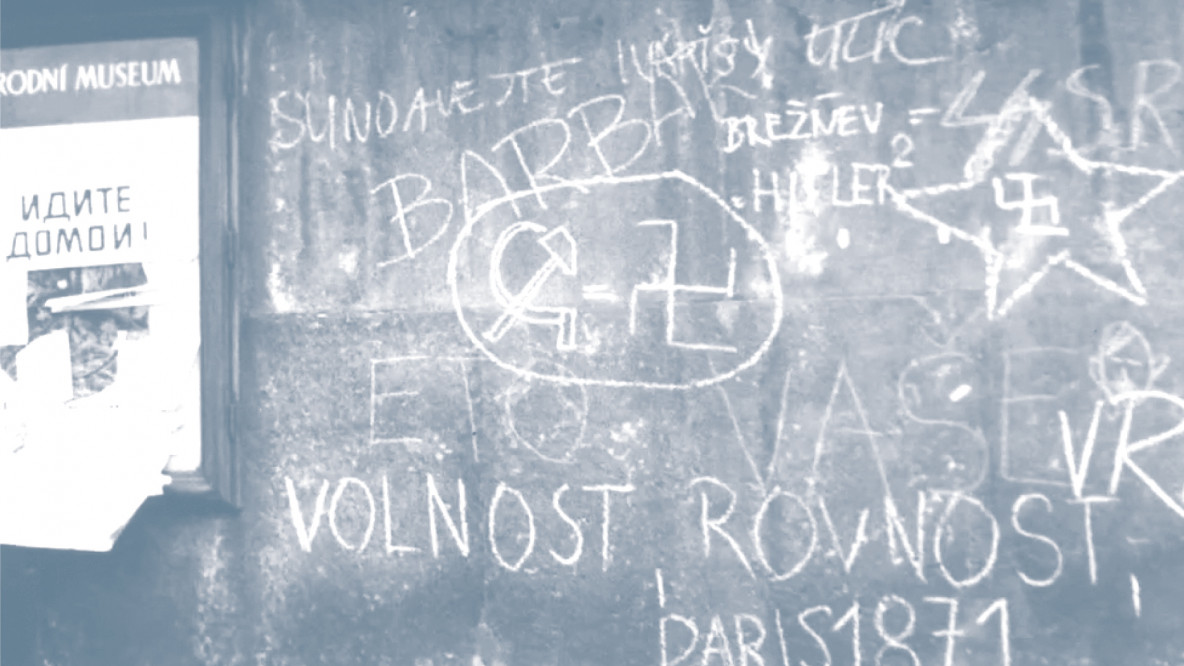 RODNÍ MUSEUM
ИДИТЕ
ДОМОЙ!
SUNDAVEJTE ULIC
BREŽNĚV =
= HITLER²
ETO VAŠE
VOLNOST ROVNOST,
PARIS 1871